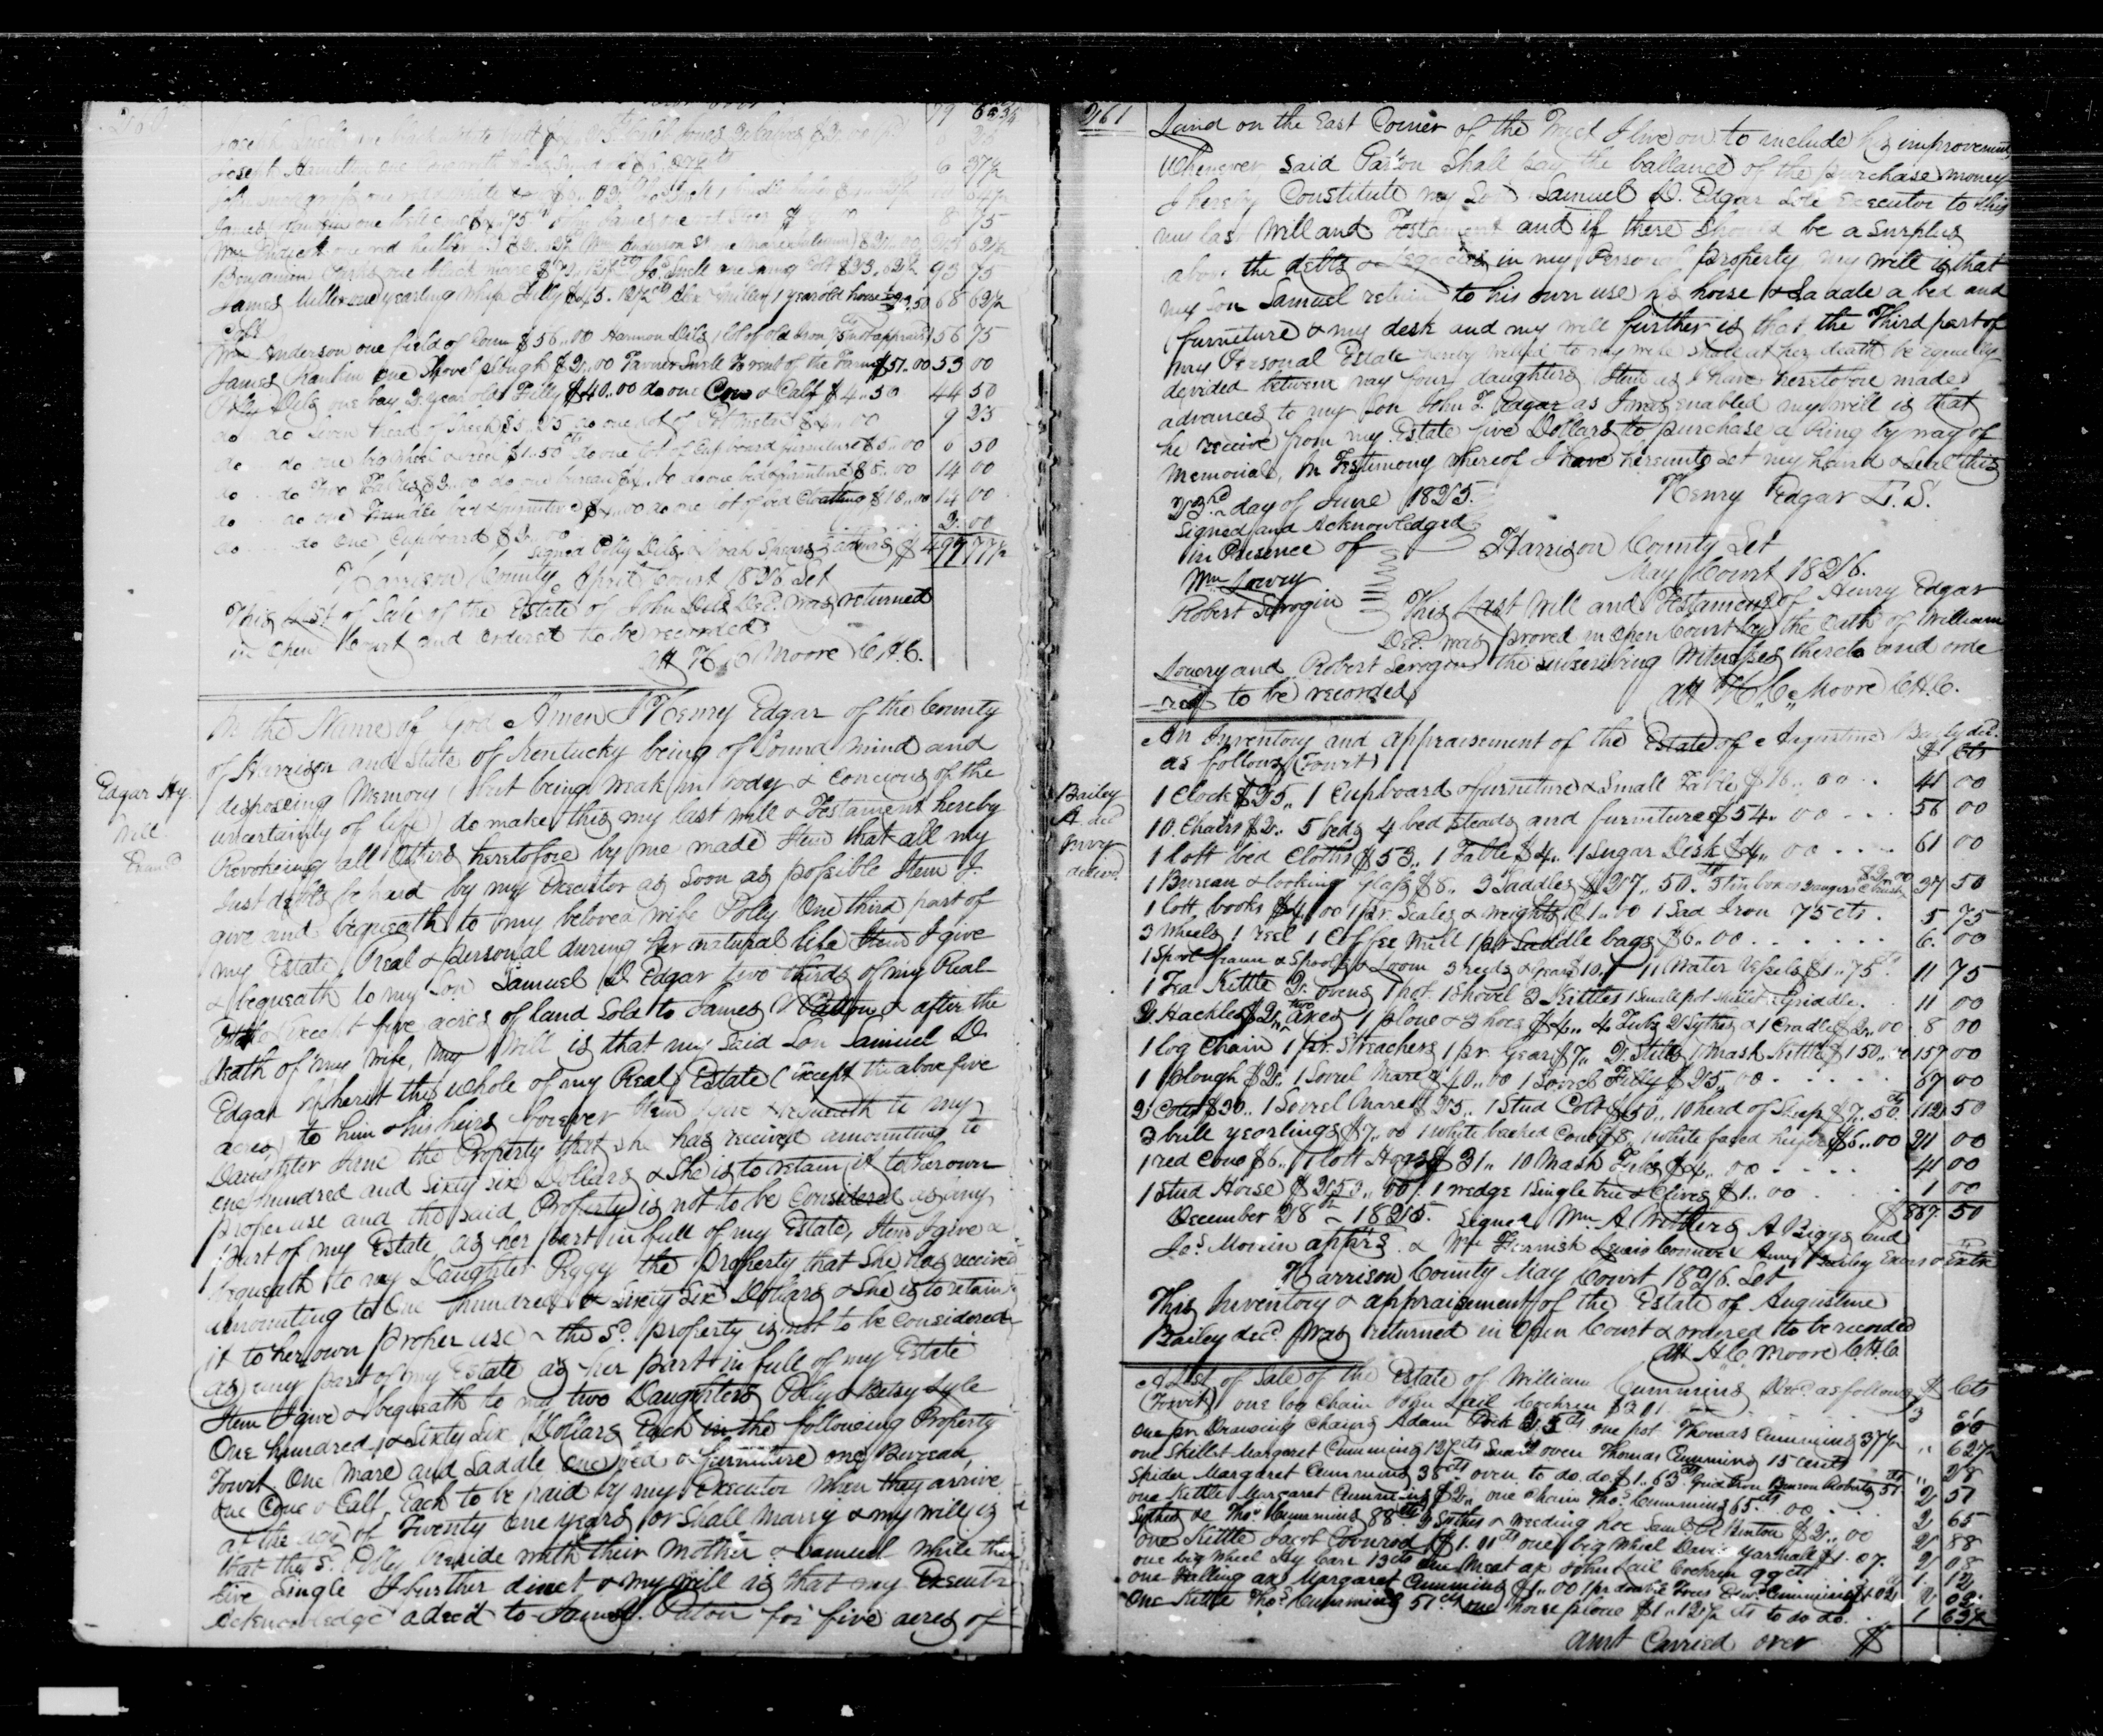 260
79 62 3/4
Joseph Hamilton one 6 37 1/2
James Rankin one 75 8 75
Wm Pidgett one red heifer Wm Anderson Sr one mare 62 1/2
Benjamin one black mare Jos Snell one Sorrel Colt $23.62 1/2 93 75
James Miller one yearling whip Filly $45.12 1/2 cts Alex 1 year old horse 23.50 68 62 1/2
Colt
Wm Anderson one field of Corn $56..00 Harmon Dils 1 lot of old Iron 75 cts not appraised 56 75
James Rankin one Shovel plough $2..00 Farmer Snell To rent of the Farm $51.00 53 00
Polly Dils one bay 2 year old Filly $40.00 do one Cow & Calf $4..50 44 50
do .. do Seven head of Sheep $5.25 do one lot of Pot mettle $4..00 9 25
do ... do one big Wheel & reel $1..50 cts do one lot of Cupboard furniture $5..00 6 50
do ... do Two Tables $2..00 do one bureau $4..00 do one bed & furniture $8..00 14 00
do ... do one Trundle bed & furniture $4..00 do one lot of bed Cloathing $10..00 14 00
do ... do One Cupboard $2..00 2. 00
Signed Polly Dils & Noah Spears admrs $497 77 1/2
Harrison County April Court 1826 Set
This List of Sale of the Estate of John Dils Decd. was returned
in Open Court and ordered to be recorded
att H. C. Moore C.H.C.
Edgar Hy.
Will
Examd
In the Name of God Amen I Henry Edgar of the County
of Harrison and State of Kentucky being of Sound mind and
desposeing Memory (but being weak in body & concious of the
uncertainty of life) do make this my last will & Testament hereby
Revokeing all Others heretofore by me made Item that all my
Just debts be paid by my Executor as Soon as possible Item I
give and bequeath to my beloved wife Polly One third part of
my Estate Real & personal during her natural life Item I give
& bequeath to my Son Samuel D. Edgar two thirds of my Real
Estate Except five acres of land Sold to James Patton & after the
Death of my wife, my Will is that my Said Son Samuel D.
Edgar inherit the whole of my Real Estate (Except the above five
acres) to him & his heirs forever Item I give & bequeath to my
Daughter Jane the Property that She has received amounting to
one hundred and Sixty Six Dollars & She is to retain it to her own
proper use and the said Property is not to be Considered as any
part of my Estate as her part in full of my Estate, Item I give &
bequeath to my Daughter Peggy the Property that She has received
amounting to One hundred & Sixty Six Dollars & She is to retain
it to her own proper use & the Sd. property is not to be considered
as any part of my Estate as her part in full of my Estate
Item I give & bequeath to my two Daughters Polly & Betsy Lyle
One hundred & Sixty Six Dollars Each in the following Property
Towit One Mare and Saddle one bed & furniture one Bureau,
one Cow & Calf Each to be paid by my Executor when they arrive
at the age of Twenty One years or Shall Marry & my will is
that the Sd. Polly reside with their Mother & Samuel while they
live Single I further direct & my will is that my Executor
Acknowledge a deed to James Paton for five acres of
261
Land on the East Corner of the Tract I live on to include his improvement
Whenever Said Paton Shall pay the ballance of the purchase money
I hereby Constitute my Son Samuel D. Edgar Sole Executor to this
my last Will and Testament and if there Should be a Surplus
above the debts & Legacies in my Personal property my will is that
my Son Samuel retain to his own use his horse & Saddle a bed and
furniture & my desk and my will further is that the Third part of
my Personal Estate hereby Willed to my wife Shall at her death be Equally
devided between my four daughters Item as I have heretofore made
advances to my Son John T. Edgar as I was enabled my will is that
he receive from my Estate five Dollars to purchase a Ring by way of
Memorial, In Testimony whereof I have hereunto Set my hand & Seal this
23rd day of June 1825.
Henry Edgar L.S.
Signed and Acknowledged
in Presence of
Wm Lowry
Robert Scrogin
Harrison County Set
May Court 1826.
This Last Will and Testament of Henry Edgar
Decd. was proved in Open Court by the Oath of William
Lowry and Robert Scrogin the Subscribing Witnesses thereto and orde
-red to be recorded
att H. C. Moore C.H.C.
Bailey
A. decd
Invy
An Inventory and appraisement of the Estate of Augustine Baily decd.
as follows (Towit) $ Cts
1 Clock $25.. 1 Cupboard & furniture & Small Table $16..00 .. 41 00
10 Chairs $2.. 5 beds 4 bed Steads and furniture $54..00 ... 56 00
1 lott bed Cloths $53.. 1 Table $4.. 1 Sugar Desk $4..00 .... 61 00
1 Bureau & looking Glass $8.. 3 Saddles $27..50 cts 5 tin boxes 37 50
1 lott books $4.00 1 pr. Scales & Weights $1..00 1 Sad Iron 75 cts . 5 75
3 Wheels 1 reel 1 Coffee Mill 1 pr Saddle bags $6..00 ...... 6. 00
1 Spool frame & Spools & Loom 3 reeds & Gears $10.. 11 Water Vessels $1..75 cts 11 75
1 Tea Kettle 2 ovens 1 pot 1 Shovel 3 Kittles 1 Small pot Skillet & Griddle. 11 00
2 Hackles $2.. two axes 1 plow & 3 hoes $4.. 4 Tubs 2 Sythes & 1 Cradle $2..00 . 8 00
1 log Chain 1 pr. Streachers 1 pr Gears $7.. 2 Stills 1 Mash Kittle $150..00 157 00
1 plough $2.. 1 Sorrel Mare $40..00 1 Sorrel Filly $25..00 ..... 67 00
2 Colts $30.. 1 Sorrel Mare $25.. 1 Stud Colt $50.. 10 head of Sheep $7..50 cts 112 50
3 bull yearlings $7..00 1 White backed Cow $8.. 1 White faced heifer $6..00 21 00
1 red Cow $6.. 1 lott Hogs $31.. 10 Mash Tubs $4..00 .... 41 00
1 Stud Horse $253..00 1 wedge 1 Single tree & Clives $1..00 ... 1 00
December 28th 1825. Signed Wm A Withers A Biggs and $887 50
Jas Monin apprs. & Wm Furnish Lewis Conner & Anny Bailey Exors & Extrx
Harrison County May Court 1826. Set
This Inventory & appraisement of the Estate of Augustine
Bailey decd. was returned in Open Court & ordered to be recorded
att H. C. Moore C.H.C.
A List of Sale of the Estate of William Cummins Decd. as follows $ Cts
(Towit) one log Chain John Lail Cochren $3 01 3
one pr Drawing Chains Adam one pot Thomas Cummins 37 1/2
one Skillet Margaret Cummins 12 1/2 cts Small oven Thomas Cummins 15 cents .. 62 1/2
Spider Margaret Cummins 38 cts oven to do. do $1.63 cts Grid Iron Benson Roberts 51 cts .. 28
one Kettle Margaret Cummins $2.. one Chain Thos. Cummins 65 cts 2 51
Sythes &c Thos Cummins 88 cts 2 Sythes & weeding hoe Saml Hinton $2..00 2 65
one Kettle Jacob Coonrod $1.01 cts one big Wheel David Yarnall $1.07. 2 88
one big Wheel 13 cts one Meat ax John Lail Cochren 99 cts 2 08
one Falling ax Margaret Cummins $1..00 1 pr double Trees Cummins $1 02 1 12
One Kittle Thos. Cummins 51 cts one horse plow $1..12 1/2 cts to do do. . 2 02
1 63 1/2
amt Carried over $